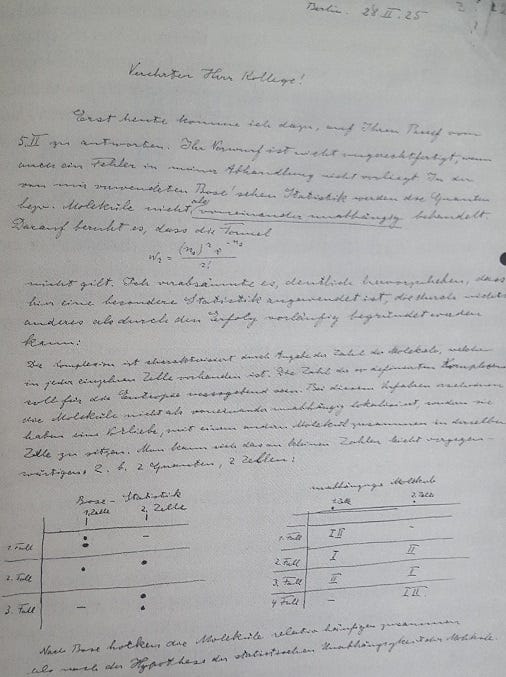 Berlin. 28 II. 25
Verehrter Herr Kollege!
Erst heute komme ich dazu, auf Ihren Brief vom
5. II zu antworten. Ihr Vorwurf ist nicht ungerechtfertigt, wenn
auch ein Fehler in meiner Abhandlung nicht vorliegt. In der
von mir verwendeten Bose'schen Statistik werden die Quanten
bezw. Moleküle nicht als voneinander unabhängig behandelt.
Darauf beruht es, dass die Formel
nicht gilt. Ich verabsäumte es, deutlich hervorzuheben, dass
hier eine besondere Statistik angewendet ist, die durch nichts
anderes als durch den Erfolg vorläufig begründet werden
kann:
Die Komplexion ist charakterisiert durch Angabe der Zahl der Moleküle, welche
in jeder einzelnen Zelle vorhanden ist. Die Zahl der so definierten Komplexionen
soll für die Entropie massgebend sein. Bei diesem Verfahren erscheinen
die Moleküle nicht als voneinander unabhängig lokalisiert, sondern sie
haben eine Vorliebe, mit einem andern Molekül zusammen in derselben
Zelle zu sitzen. Man kann sich das an kleinen Zahlen leicht vergegen-
wärtigen. Z. b. 2 Quanten, 2 Zellen:
Bose-Statistik unabhängige Moleküle
1. Zelle 2. Zelle 1. Zelle 2. Zelle
1. Fall – 1. Fall I II –
2. Fall 2. Fall I II
3. Fall – 3. Fall II I
4. Fall – I II
Nach Bose hocken die Moleküle relativ häufiger zusammen
als nach der Hypothese der statistischen Unabhängigkeit der Moleküle.